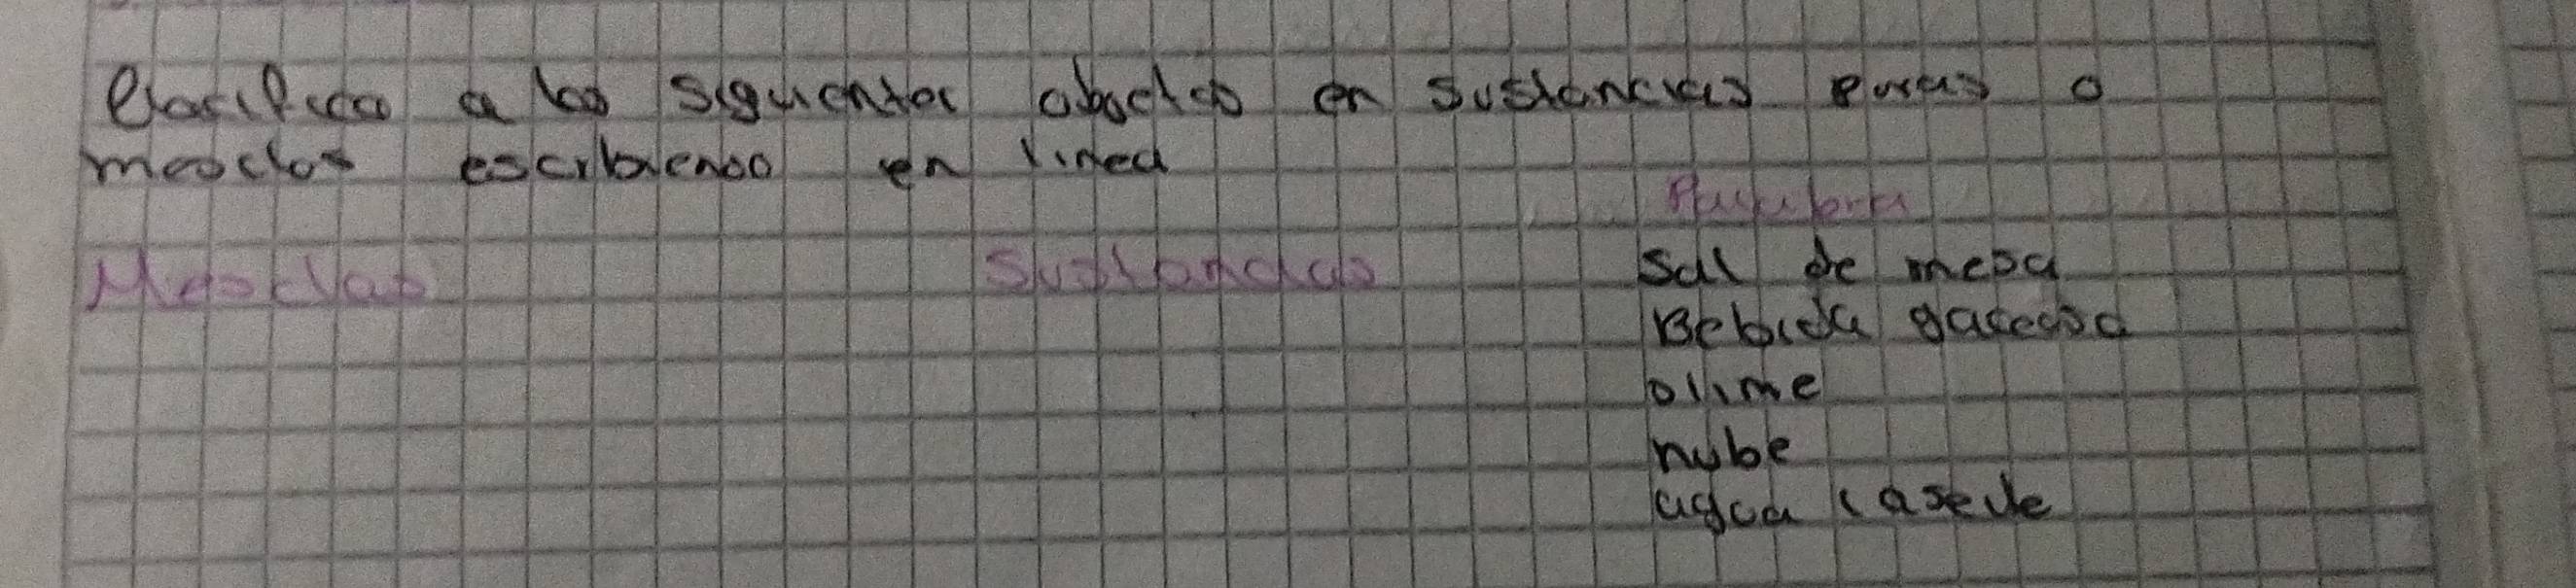 Clasifica a los siguientes obactos en sustancias puras o
mesclas escribienoo en linea
Mesclas
Sustancias
sal de mesa
Bebida gaceosa
olime
nube
agua